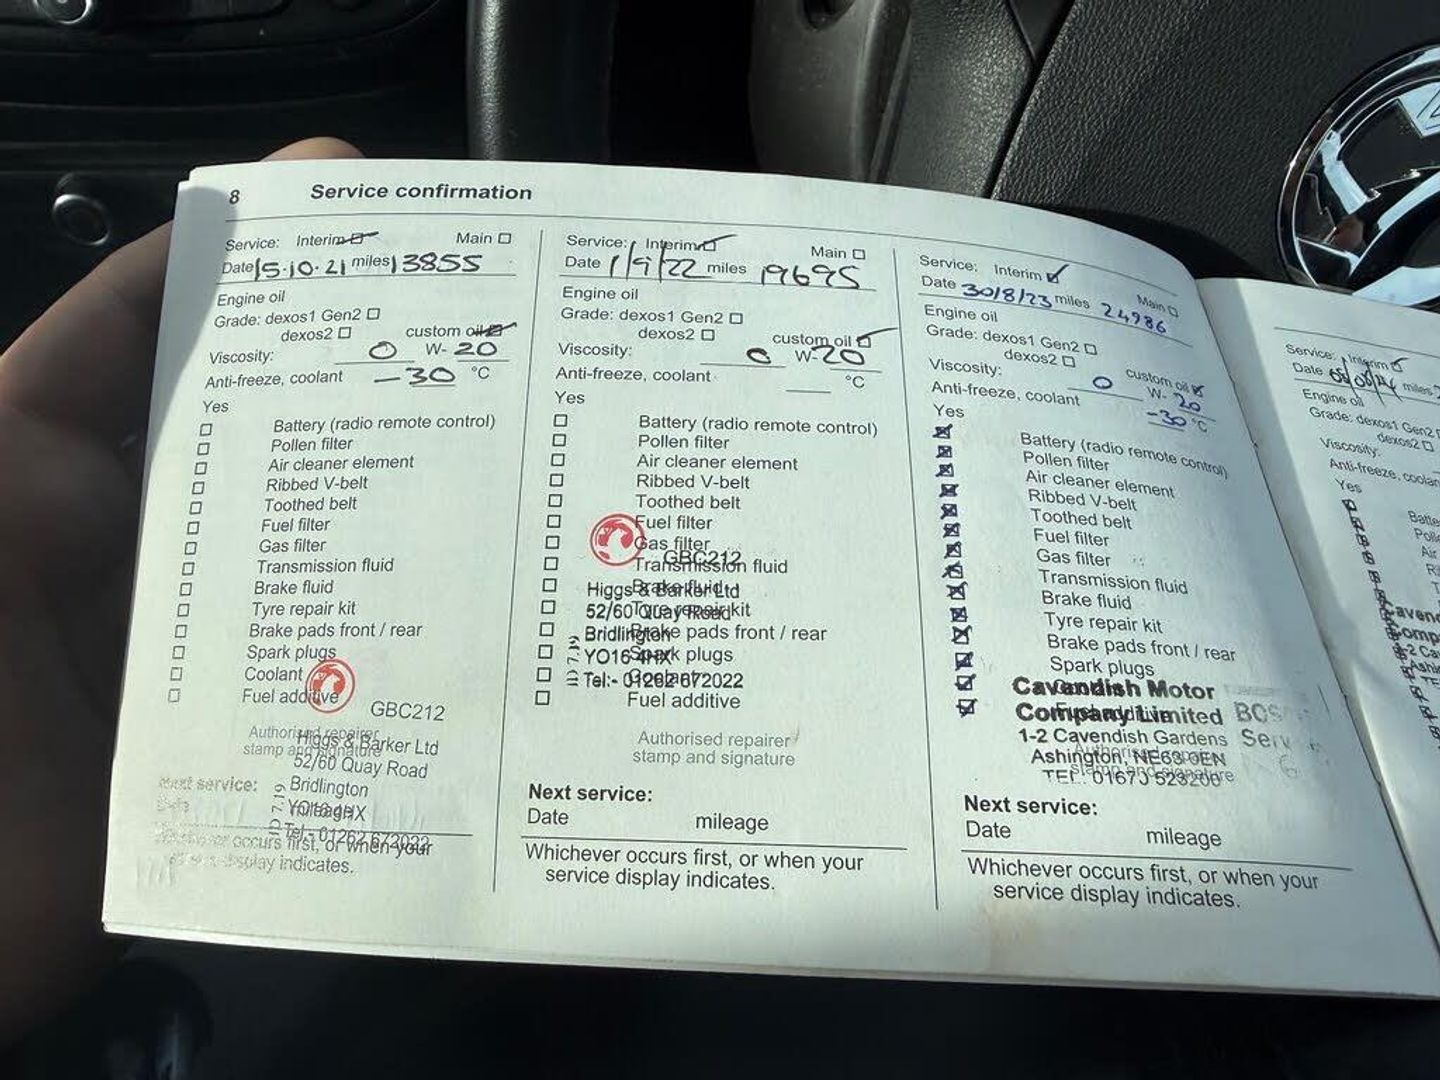 8 Service confirmation
Service: Interim Main
Date 15.10.21 miles 13855
Engine oil
Grade: dexos1 Gen2
dexos2 custom oil
Viscosity: 0 W- 20
Anti-freeze, coolant -30 °C
Yes
Battery (radio remote control)
Pollen filter
Air cleaner element
Ribbed V-belt
Toothed belt
Fuel filter
Gas filter
Transmission fluid
Brake fluid
Tyre repair kit
Brake pads front / rear
Spark plugs
Coolant
Fuel additive
GBC212
Authorised repairer
stamp and signature
Higgs & Barker Ltd
52/60 Quay Road
Bridlington
YO16 4HX
Tel:- 01262 672022
Next service:
mileage
occurs first, or when your
display indicates.
Service: Interim Main
Date 1/9/22 miles 19695
Engine oil
Grade: dexos1 Gen2
dexos2 custom oil
Viscosity: 0 W- 20
Anti-freeze, coolant °C
Yes
Battery (radio remote control)
Pollen filter
Air cleaner element
Ribbed V-belt
Toothed belt
Fuel filter
Gas filter
GBC212
Transmission fluid
Brake fluid
Higgs & Barker Ltd
Tyre repair kit
52/60 Quay Road
Brake pads front / rear
Bridlington
Spark plugs
YO16 4HX
Coolant
Tel:- 01262 672022
Fuel additive
Authorised repairer
stamp and signature
Next service:
Date mileage
Whichever occurs first, or when your
service display indicates.
Service: Interim Main
Date 30/8/23 miles 24986
Engine oil
Grade: dexos1 Gen2
dexos2 custom oil
Viscosity: 0 W- 20
Anti-freeze, coolant -30 °C
Yes
Battery (radio remote control)
Pollen filter
Air cleaner element
Ribbed V-belt
Toothed belt
Fuel filter
Gas filter
Transmission fluid
Brake fluid
Tyre repair kit
Brake pads front / rear
Spark plugs
Cavendish Motor
Company Limited
1-2 Cavendish Gardens
Ashington, NE63 0EN
TEL: 01670 523200
Next service:
Date mileage
Whichever occurs first, or when your
service display indicates.
Service: Interim
Date miles
Engine oil
Grade: dexos1 Gen2
dexos2
Viscosity:
Yes